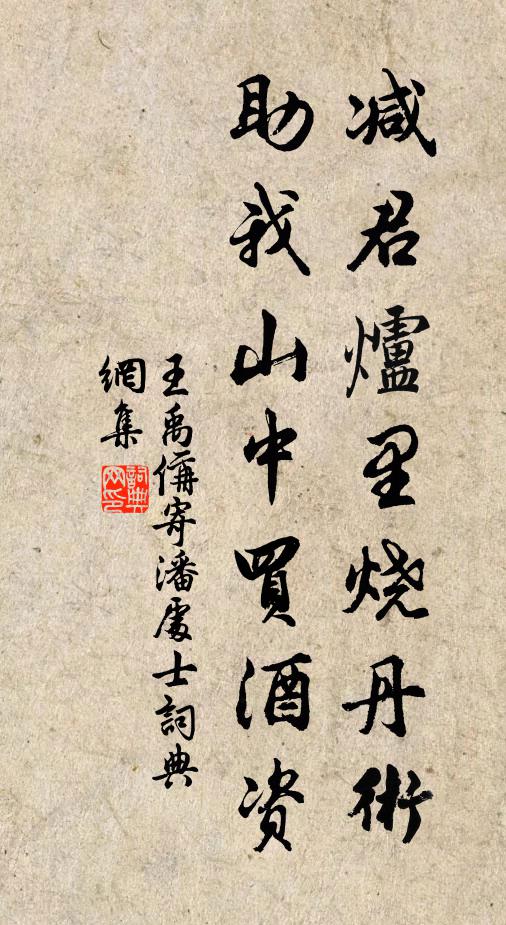 减君爐里烧丹術
助我山中買酒资
王禹偁寄潘處士詞典
網集
詞典
网印